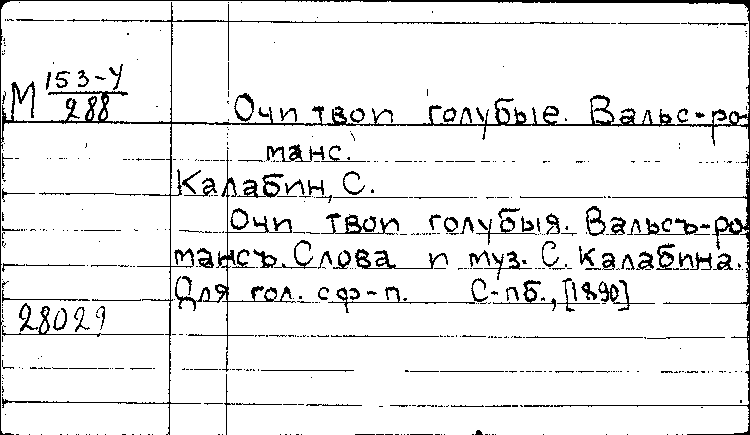 М 153-У/288
Очи твои голубые. Вальс-ро-
манс.
Калабин, С.
Очи твои голубыя. Вальсъ-ро-
мансъ. Слова и муз. С. Калабина.
Для гол. с ф-п. С-пб., [1890]
28029